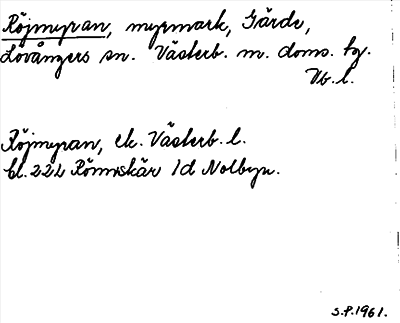 Röjmyran, myrmark, Gärde,
Lövångers sn. Västerb. m. doms. tg.
Vb. l.
Röjmyran, ek. Västerb. l.
bl. 222 Rönnskär 1d Nolbyn.
S.P. 1961.